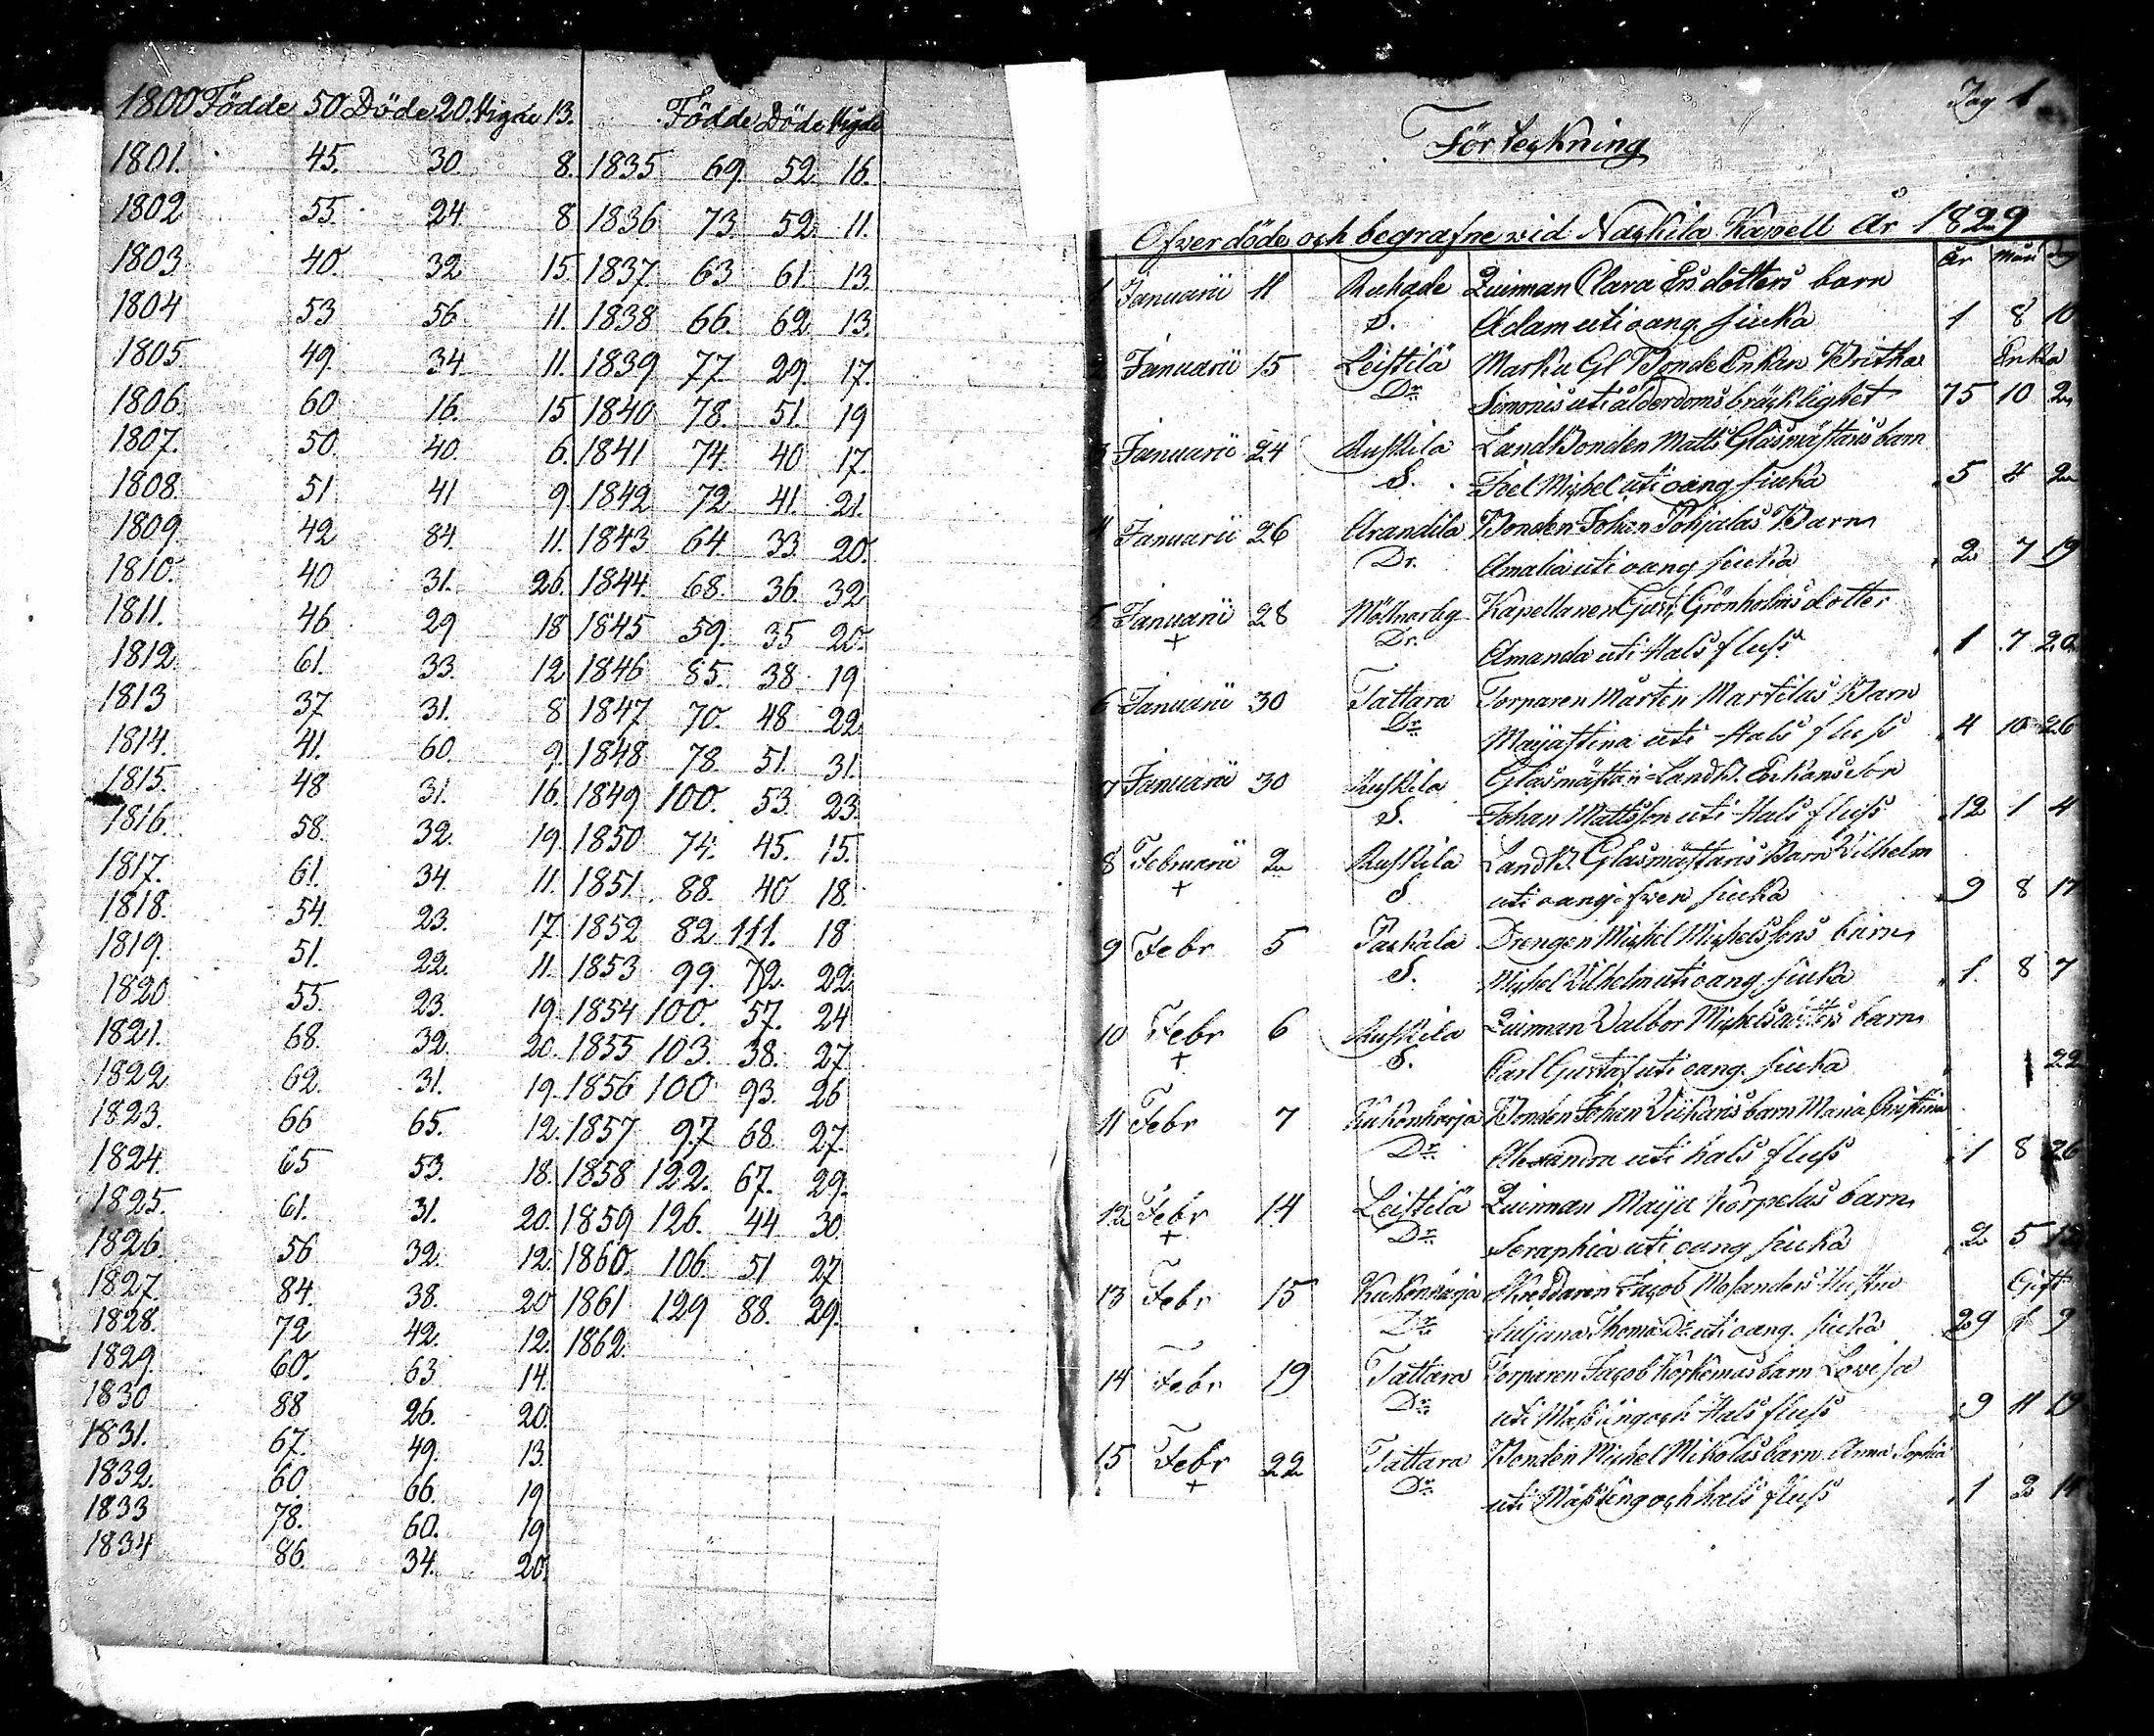 1800 Födde 50 Döde 20. Vigde 13.
1801. 45. 30. 8.
1802 55. 24. 8
1803. 40. 32 15
1804 53 56. 11.
1805. 49. 34. 11.
1806. 60 16. 15
1807. 50. 40. 6.
1808. 51 41 9
1809. 42 84. 11.
1810. 40 31. 26.
1811. 46. 29 18
1812. 61. 33. 12
1813 37 31. 8
1814. 41. 60. 9.
1815. 48 31. 16.
1816. 58. 32. 19.
1817. 61. 34. 11.
1818. 54. 23. 17.
1819. 51. 22. 11.
1820 55. 23. 19
1821. 68. 32. 20.
1822 62. 31. 19.
1823. 66 65. 12.
1824. 65 53. 18.
1825. 61. 31. 20.
1826. 56 32. 12.
1827. 84. 38. 20
1828. 72 42. 12.
1829. 60. 63 14.
1830 88 26. 20.
1831. 67. 49. 13.
1832. 60. 66. 19
1833 78. 60. 19
1834 86. 34. 20.
Födde Döde Vigde
1835 69. 52. 16.
1836 73. 52. 11.
1837. 63 61. 13
1838 66. 62 13.
1839 77. 29. 17.
1840 78. 51. 19
1841 74. 40 17.
1842 72. 41. 21.
1843 64. 33 20.
1844. 68. 36. 32
1845 59. 35 20.
1846 85. 38 19
1847 70. 48 22
1848 78. 51. 31.
1849 100. 53. 23.
1850 74. 45. 15.
1851 88. 40 18.
1852 82 111. 18
1853 99. 72. 22
1854 100. 57. 24
1855 103. 38. 27
1856 100 93. 26
1857 97 68. 27.
1858 122. 67. 29.
1859 126. 44 30
1860. 106. 51 27
1861 129 88. 29.
1862.
1
Förteckning
Öfver döde och begrafne vid Nackila Kapell År 1829
År Mån Dag
1 Januarii 11 Clara Ersdotters barn
S. Adam uti oäng. siuka 1 8 10
2 Januarii 15 Leistilä Bonde Enkan Britha Enka
Dr. Simonis uti ålderdoms bräcklighet 75 10 2
3 Januarii 24 Ruskila Landbonden Matts Glasmästaris barn
S. Joel Michel uti oäng siuka 5 4 2
4 Januarii 26 Arandila Bonden Johan Pohjalas Barn
Dr. Amalia uti oäng siuka 2 7 19
5 Januarii 28 Kapellanen Gust. Grönholms dotter
+ Dr. Amanda uti Halsfluss 1 7 20
6 Januarii 30 Tattara Torparen Mårten Martilas Barn
Dr. Maijastina uti Halsfluss 4 10 26
7 Januarii 30 Ruskila Glasmästari Landb. Enkans son
S. Johan Mattsson uti Halsfluss 12 1 4
8 Februarii 2 Ruskila Landb. Glasmästaris Barn Vilhelm
+ S uti oängifven siuka 9 8 17
9 Febr 5 Drengen Michel Michelssons barn
S. Michel Vilhelm uti oäng. siuka 1 8 7
10 Febr 6 Ruskila Valbor Michelsdotters barn
+ S. Carl Gustaf uti oäng. siuka 22
11 Febr 7 Kukonharja Bonden Johan Viikaris barn Maria Christina
Dr. Alexandra uti halsfluss 1 8 26
12 Febr 14 Leistilä Maija Korpelas barn
+ Dr. Seraphia uti oäng siuka 2 5
13 Febr 15 Kukonharja Skreddaren Jacob Molanders Hustru Gift
Dr. Juljana Thomæ Dr. uti oäng. siuka 29 9
14 Febr 19 Tattara Torparen Jacob Koskemas barn Lovisa
Dr. uti Mässling och Halsfluss 9 11 19
15 Febr 22 Tattara Bonden Michel Mikolas barn Anna Sophia
+ Dr. uti Mässling och halsfluss 1 2